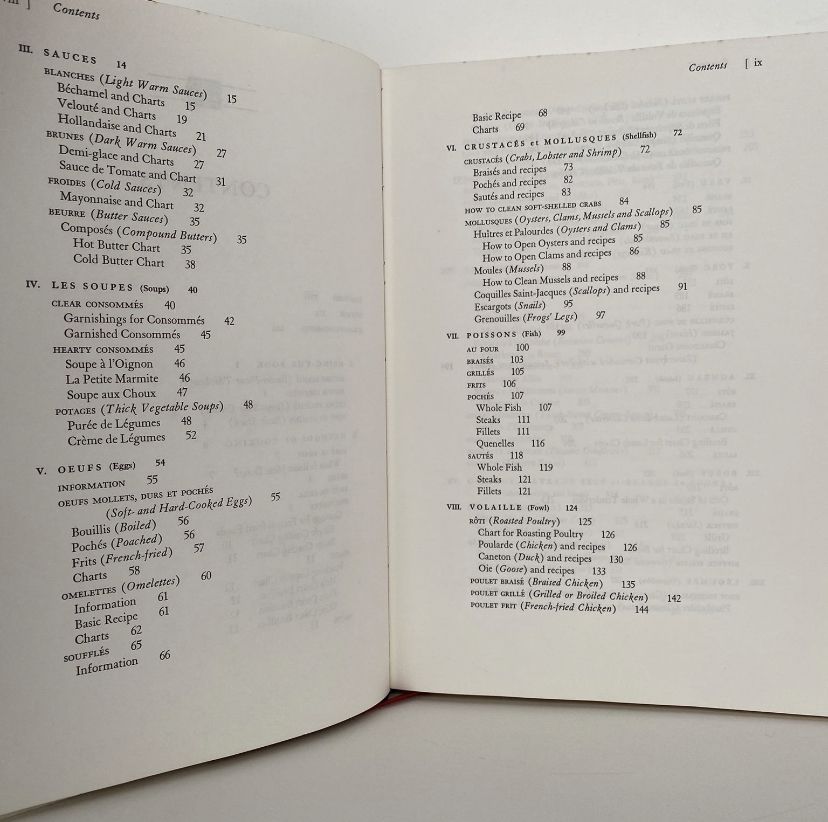 ] Contents
III. SAUCES 14
BLANCHES (Light Warm Sauces) 15
Béchamel and Charts 15
Velouté and Charts 19
Hollandaise and Charts 21
BRUNES (Dark Warm Sauces) 27
Demi-glace and Charts 27
Sauce de Tomate and Chart 31
FROIDES (Cold Sauces) 32
Mayonnaise and Chart 32
BEURRE (Butter Sauces) 35
Composés (Compound Butters) 35
Hot Butter Chart 35
Cold Butter Chart 38
IV. LES SOUPES (Soups) 40
CLEAR CONSOMMÉS 40
Garnishings for Consommés 42
Garnished Consommés 45
HEARTY CONSOMMÉS 45
Soupe à l'Oignon 46
La Petite Marmite 46
Soupe aux Choux 47
POTAGES (Thick Vegetable Soups) 48
Purée de Légumes 48
Crème de Légumes 52
V. OEUFS (Eggs) 54
INFORMATION 55
OEUFS MOLLETS, DURS ET POCHÉS
(Soft- and Hard-Cooked Eggs) 55
Bouillis (Boiled) 56
Pochés (Poached) 56
Frits (French-fried) 57
Charts 58
OMELETTES (Omelettes) 60
Information 61
Basic Recipe 61
Charts 62
SOUFFLÉS 65
Information 66
Contents [ ix
Basic Recipe 68
Charts 69
VI. CRUSTACÉS et MOLLUSQUES (Shellfish) 72
CRUSTACÉS (Crabs, Lobster and Shrimp) 72
Braisés and recipes 73
Pochés and recipes 82
Sautés and recipes 83
HOW TO CLEAN SOFT-SHELLED CRABS 84
MOLLUSQUES (Oysters, Clams, Mussels and Scallops) 85
Huîtres et Palourdes (Oysters and Clams) 85
How to Open Oysters and recipes 85
How to Open Clams and recipes 86
Moules (Mussels) 88
How to Clean Mussels and recipes 88
Coquilles Saint-Jacques (Scallops) and recipes 91
Escargots (Snails) 95
Grenouilles (Frogs' Legs) 97
VII. POISSONS (Fish) 99
AU FOUR 100
BRAISÉS 103
GRILLÉS 105
FRITS 106
POCHÉS 107
Whole Fish 107
Steaks 111
Fillets 111
Quenelles 116
SAUTÉS 118
Whole Fish 119
Steaks 121
Fillets 121
VIII. VOLAILLE (Fowl) 124
RÔTI (Roasted Poultry) 125
Chart for Roasting Poultry 126
Poularde (Chicken) and recipes 126
Caneton (Duck) and recipes 130
Oie (Goose) and recipes 133
POULET BRAISÉ (Braised Chicken) 135
POULET GRILLÉ (Grilled or Broiled Chicken) 142
POULET FRIT (French-fried Chicken) 144